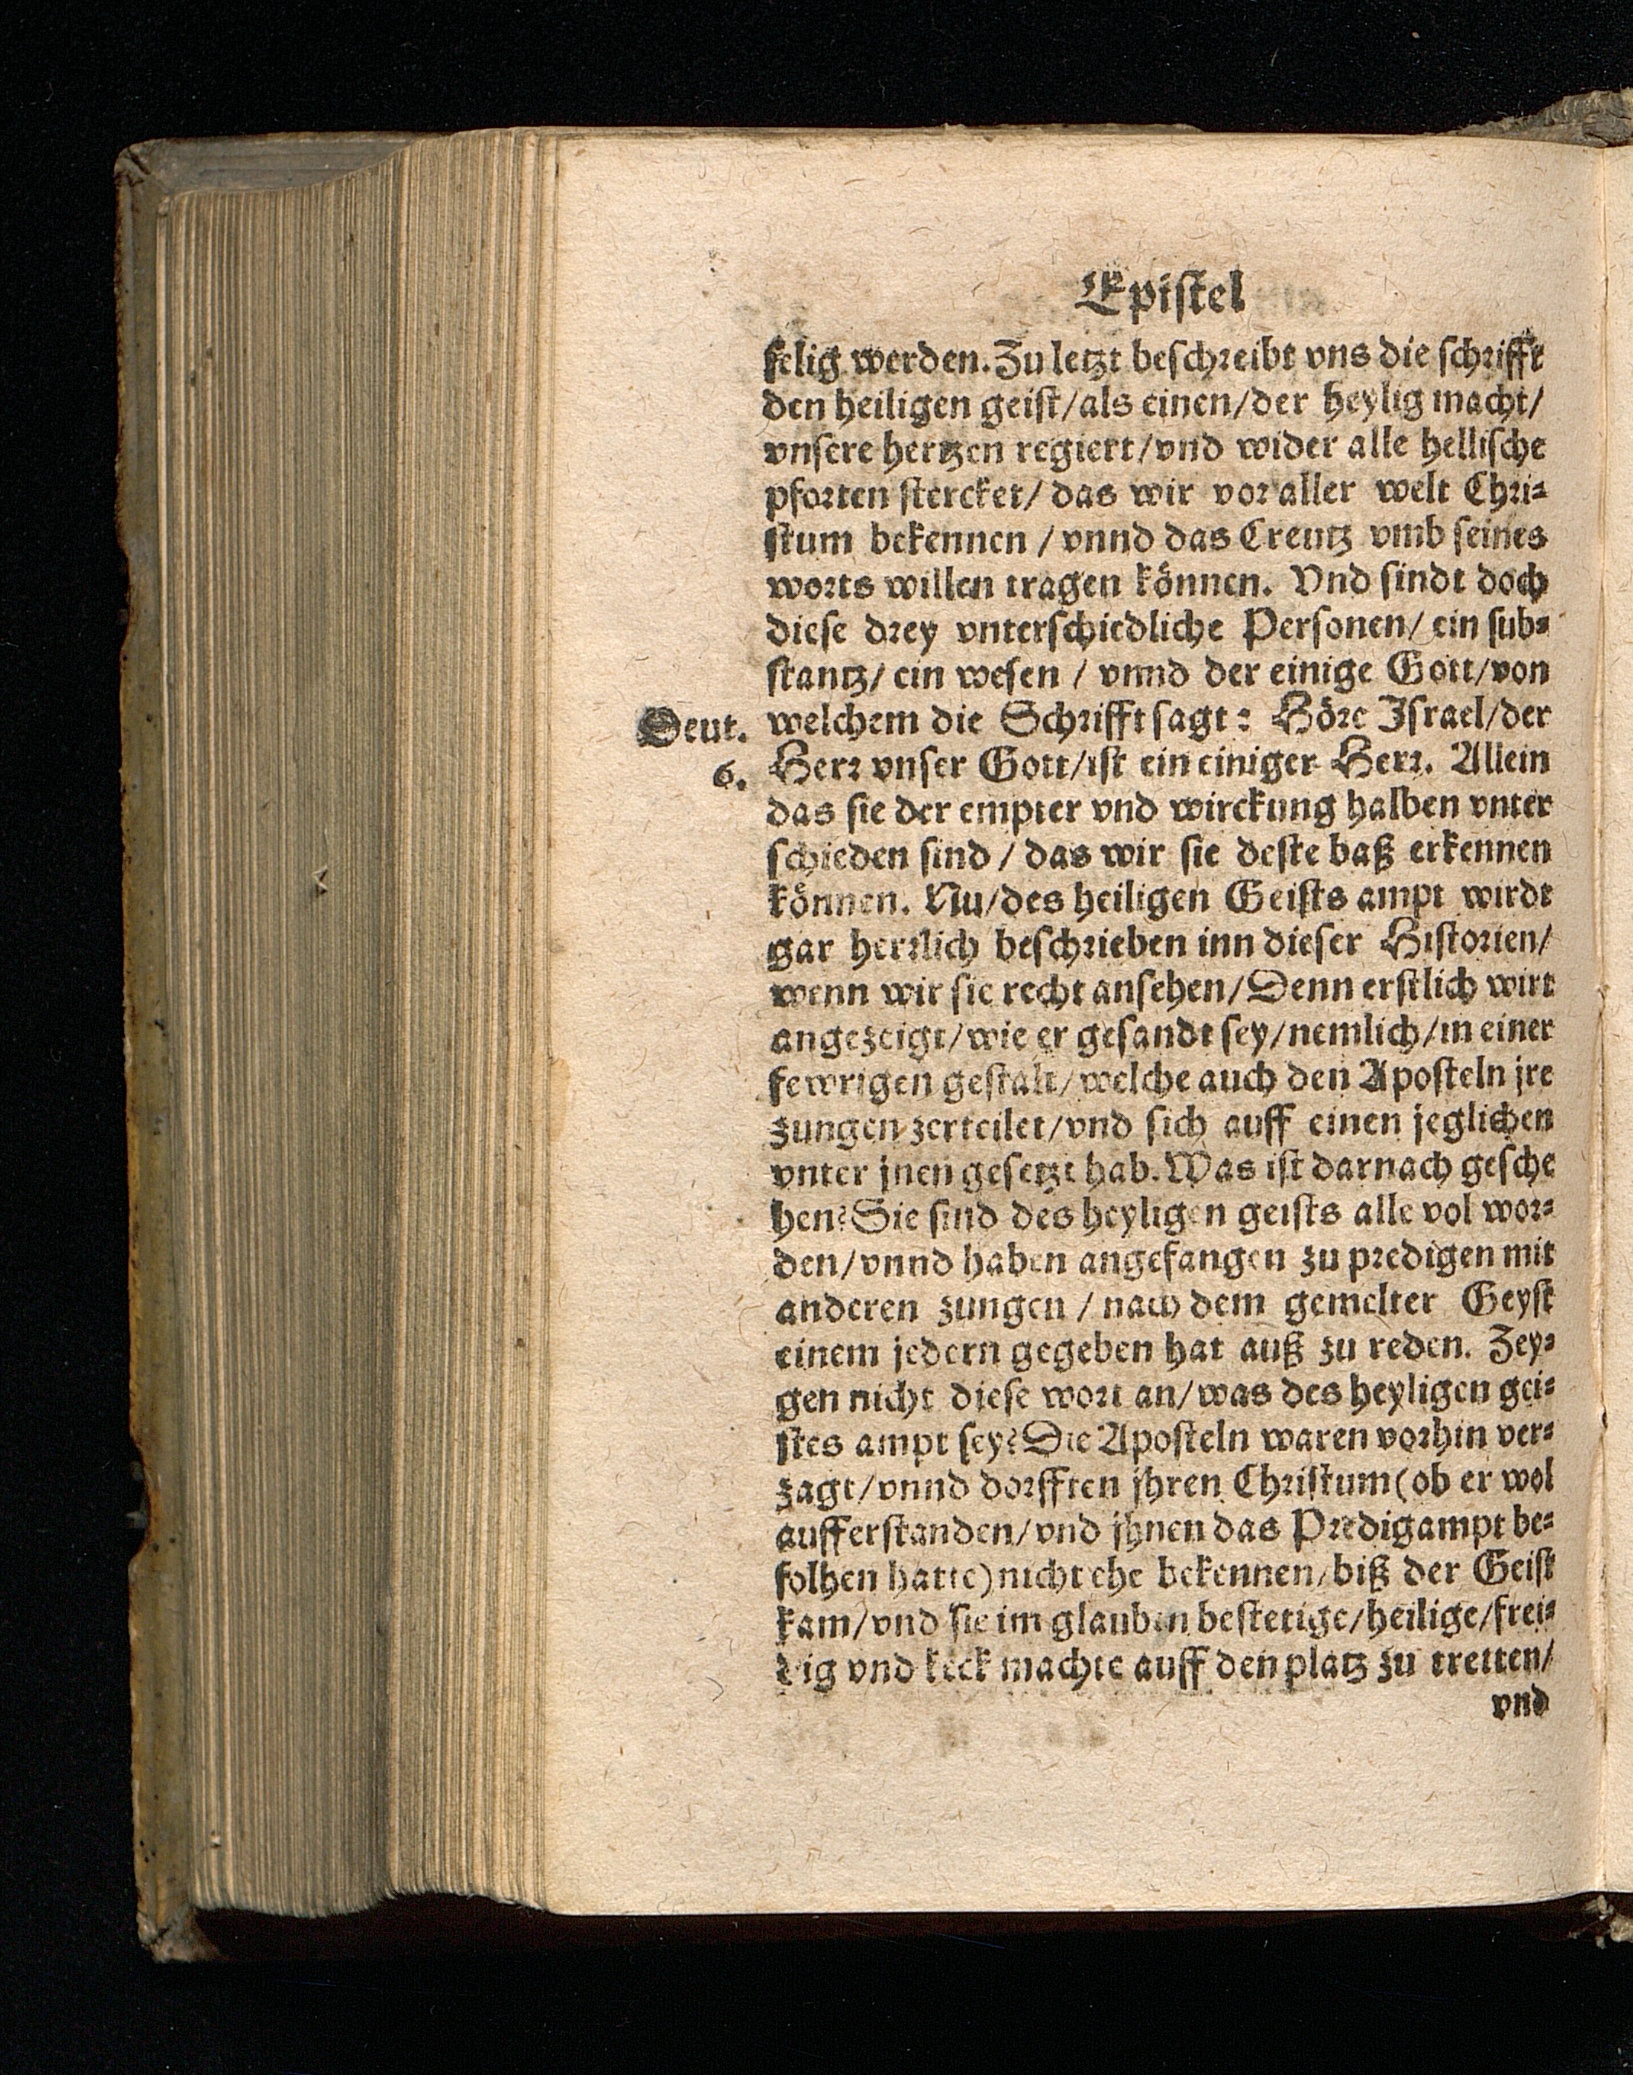 Epistel
selig werden. Zu letzt beschreibt vns die schrifft
den heiligen geist/als einen/der heylig macht/
vnsere hertzen regiert/vnd wider alle hellische
pforten stercket/ das wir vor aller welt Chri-
stum bekennen / vnnd das Creutz vmb seines
worts willen tragen können. Vnd sindt doch
diese drey vnterschiedliche Personen/ ein sub-
stantz/ ein wesen / vnnd der einige Gott/von
Deut. welchem die Schrifft sagt: Höre Israel/der
6. Herr vnser Gott/ist ein einiger Herr. Allein
das sie der empter vnd wirckung halben vnter
schieden sind / das wir sie deste baß erkennen
können. Nu/des heiligen Geists ampt wirdt
gar herrlich beschrieben inn dieser Historien/
wenn wir sie recht ansehen/Denn erstlich wirt
angezeigt/wie er gesandt sey/nemlich/in einer
fewrigen gestalt/welche auch den Aposteln jre
zungen zerteilet/vnd sich auff einen jeglichen
vnter jnen gesetzt hab. Was ist darnach gesche
hen? Sie sind des heyligen geists alle vol wor-
den/vnnd haben angefangen zu predigen mit
anderen zungen / nach dem gemelter Geyst
einem jedern gegeben hat auß zu reden. Zey-
gen nicht diese wort an/was des heyligen gei-
stes ampt sey? Die Aposteln waren vorhin ver-
zagt/vnnd dorfften jhren Christum (ob er wol
aufferstanden/vnd jhnen das Predigampt be-
folhen hatte) nicht ehe bekennen/biß der Geist
kam/vnd sie im glauben bestetige/heilige/frei-
dig vnd keck machte auff den platz zu tretten/
vnd